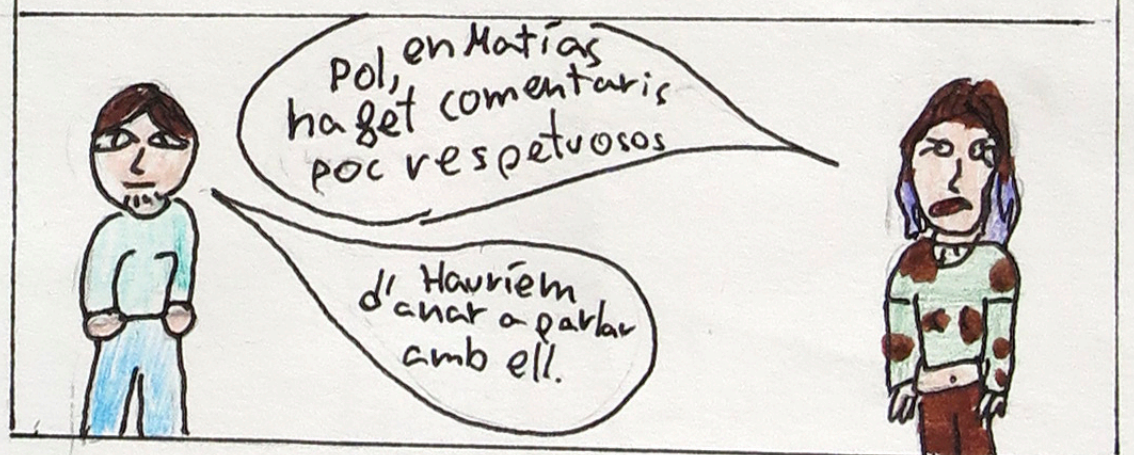 Pol, en Matías
ha fet comentaris
poc respetuosos
Hauríem
d'anar a parlar
amb ell.